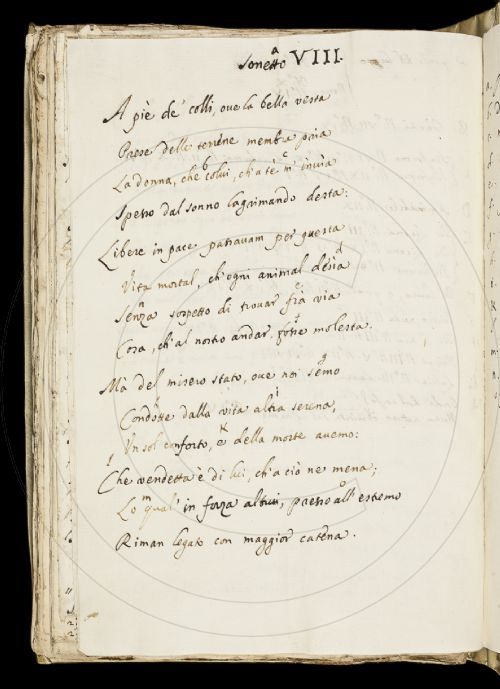 Sonetto VIII.
A piè de' colli, oue la bella vesta
Prese delle terrene membra pria
La donna, che colui, ch'a tè n' inuia
Spesso dal sonno lagrimando desta:
Libere in pace passauam per questa
Vita mortal, ch'ogni animal desia
Senza sospetto di trouar frà via
Cosa, ch'al nostro andar fosse molesta.
Mà del misero stato, oue noi semo
Condotte dalla vita altra serena,
Vn sol conforto, e della morte auemo:
Che vendetta è di lui, ch'a ciò ne mena;
Lo qual in forza altrui, presso all' estremo
Riman legato con maggior catena.